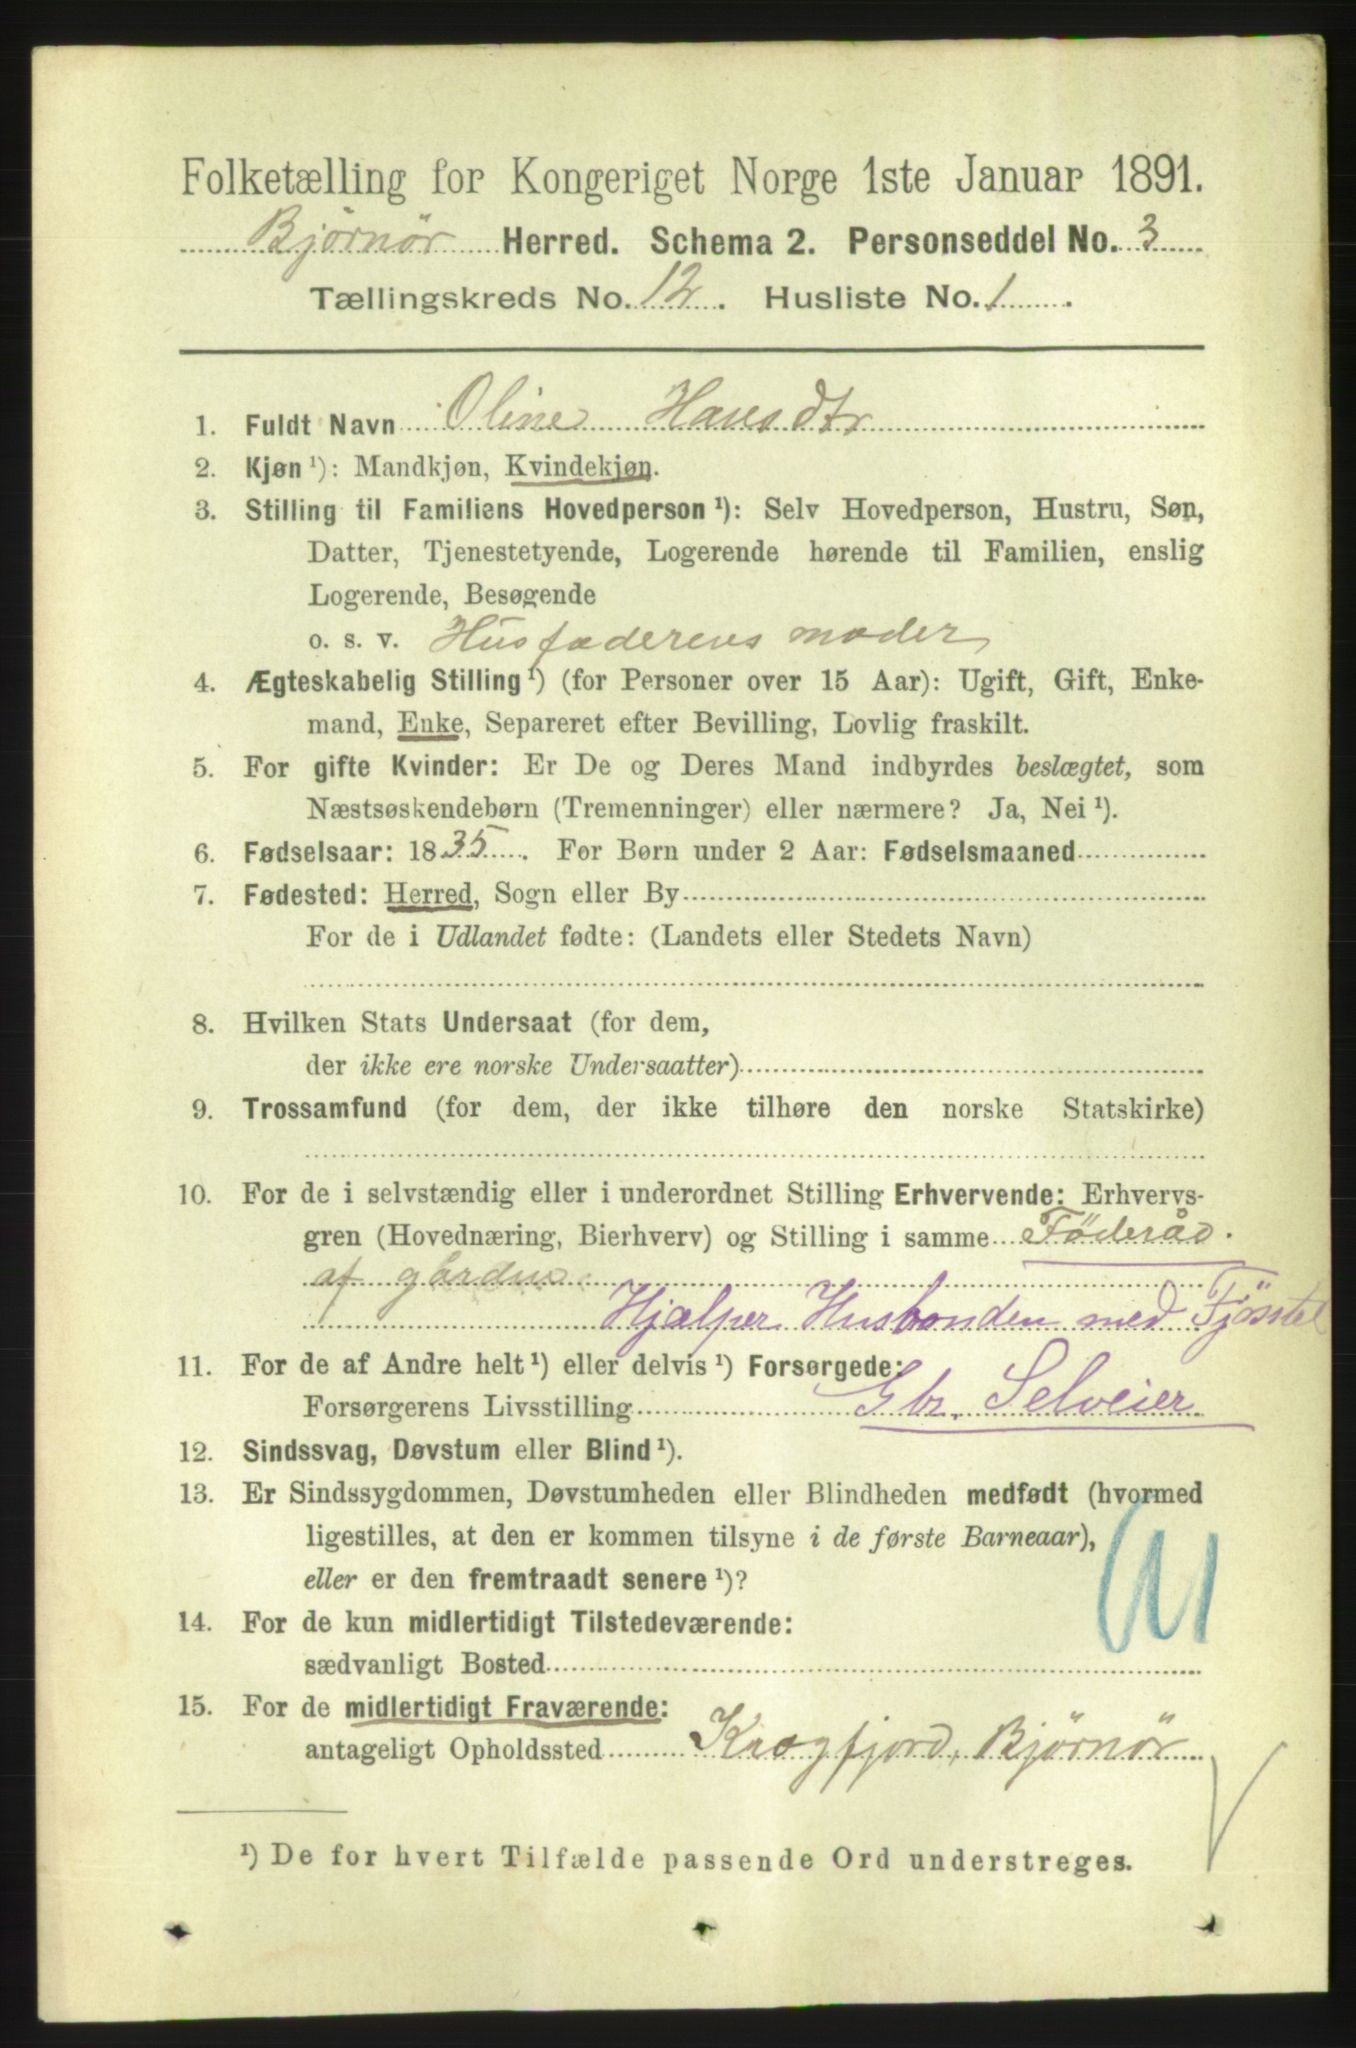 Folketælling for Kongeriget Norge 1ste Januar 1891.
Bjørnør Herred. Schema 2. Personseddel No. 3
Tællingskreds No. 12. Husliste No. 1.
1. Fuldt Navn Oline Hansdtr
2. Kjøn ¹): Mandkjøn, Kvindekjøn.
3. Stilling til Familiens Hovedperson ¹): Selv Hovedperson, Hustru, Søn,
Datter, Tjenestetyende, Logerende hørende til Familien, enslig
Logerende, Besøgende
o. s. v. Husfaderens moder
4. Ægteskabelig Stilling ¹) (for Personer over 15 Aar): Ugift, Gift, Enke-
mand, Enke, Separeret efter Bevilling, Lovlig fraskilt.
5. For gifte Kvinder: Er De og Deres Mand indbyrdes beslægtet, som
Næstsøskendebørn (Tremenninger) eller nærmere? Ja, Nei ¹).
6. Fødselsaar: 1835. For Børn under 2 Aar: Fødselsmaaned
7. Fødested: Herred, Sogn eller By
For de i Udlandet fødte: (Landets eller Stedets Navn)
8. Hvilken Stats Undersaat (for dem,
der ikke ere norske Undersaatter)
9. Trossamfund (for dem, der ikke tilhøre den norske Statskirke)
10. For de i selvstændig eller i underordnet Stilling Erhvervende: Erhvervs-
gren (Hovednæring, Bierhverv) og Stilling i samme Föderåd.
af gården.
Hjælper Husbonden med Fjösstel
11. For de af Andre helt ¹) eller delvis ¹) Forsørgede:
Forsørgerens Livsstilling Gbr. Selveier
12. Sindssvag, Døvstum eller Blind ¹).
13. Er Sindssygdommen, Døvstumheden eller Blindheden medfødt (hvormed
ligestilles, at den er kommen tilsyne i de første Barneaar),
eller er den fremtraadt senere ¹)?
14. For de kun midlertidigt Tilstedeværende:
sædvanligt Bosted
15. For de midlertidigt Fraværende:
antageligt Opholdssted Krogfjord, Bjørnør
¹) De for hvert Tilfælde passende Ord understreges.